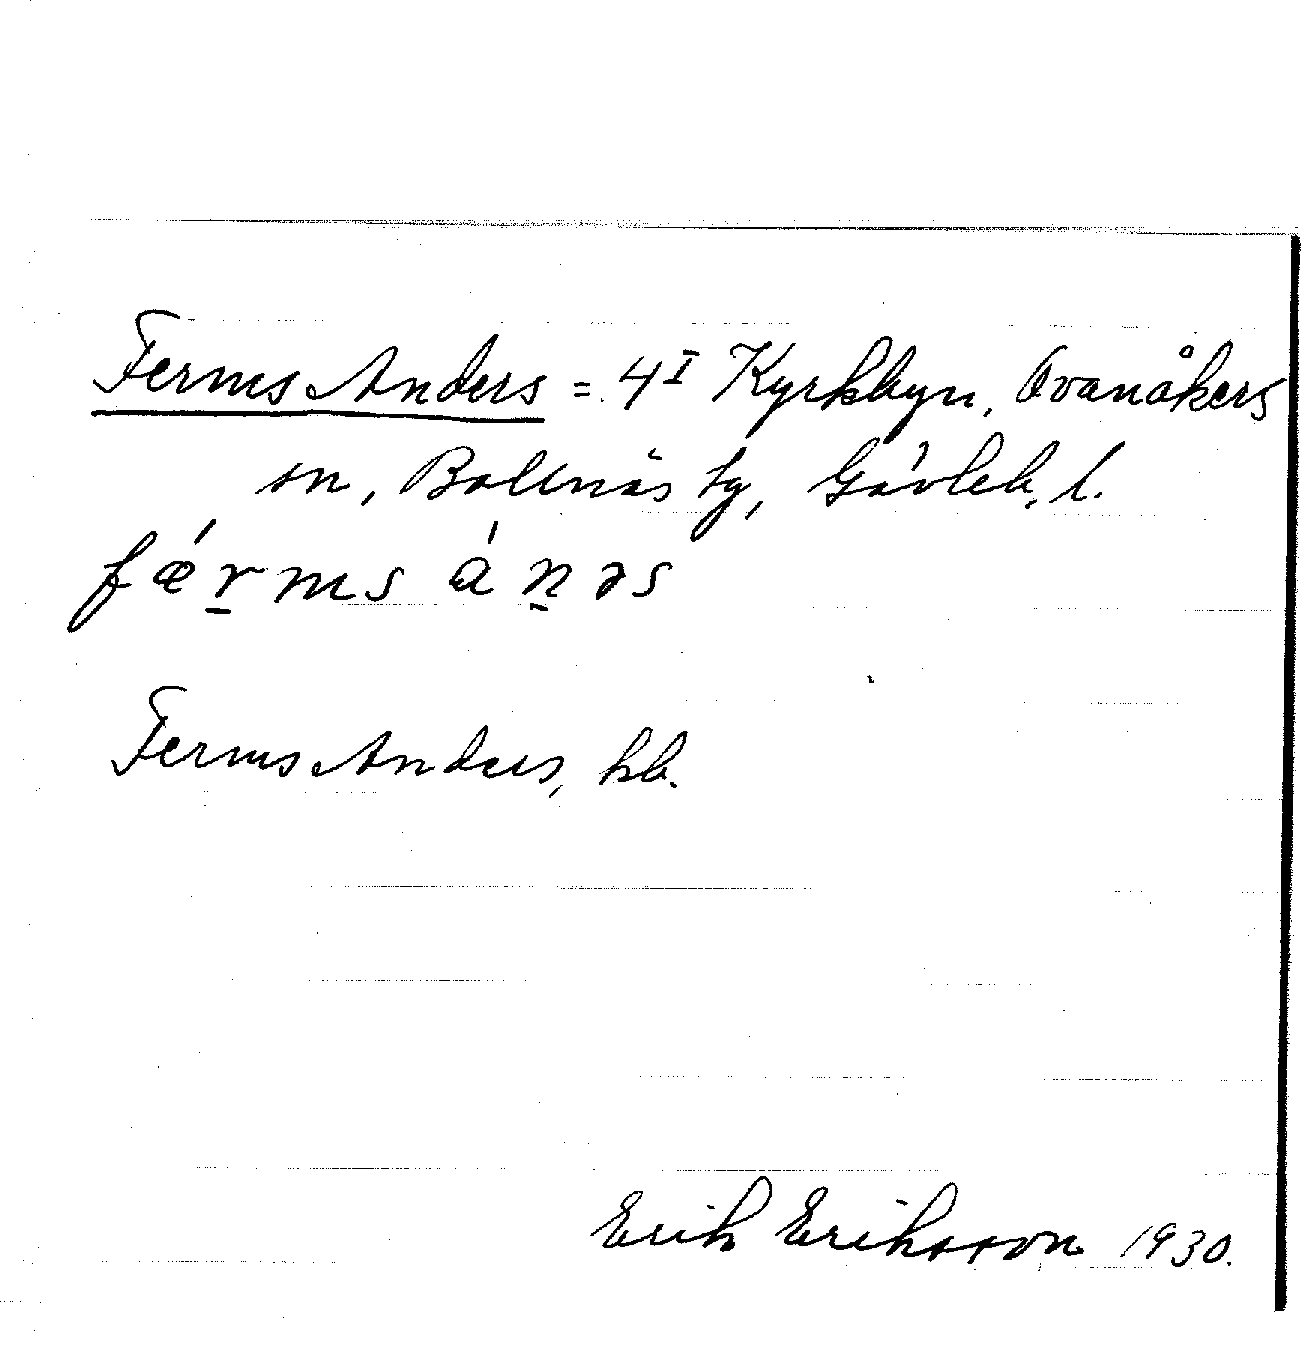 Ferms Anders = 4I Kyrkbyn, Ovanåkers
sn, Bollnäs tg, Gävleb. l.
fǽr̲ms án̲əs
Ferms Anders, hb.
Erik Eriksson 1930.